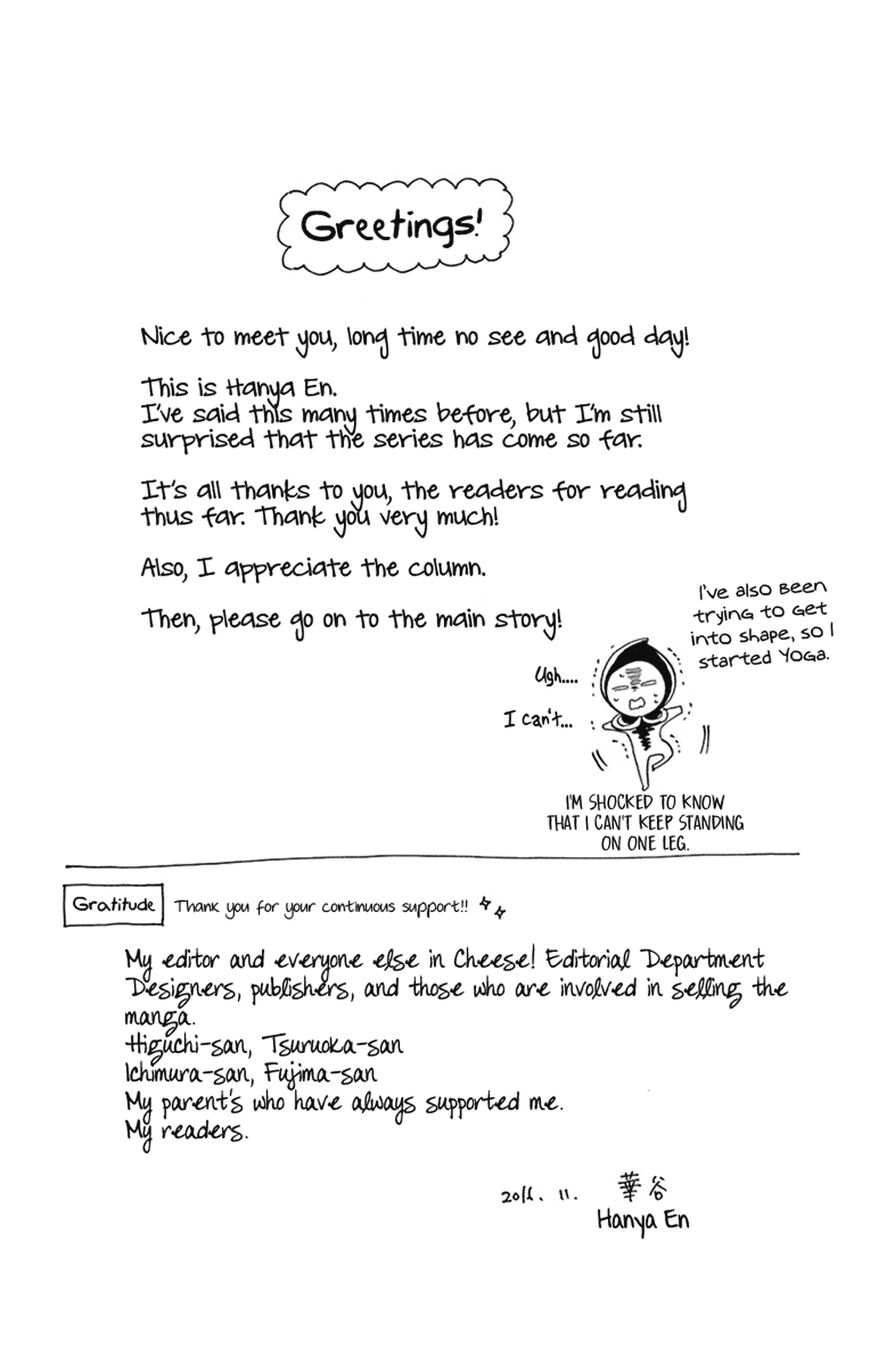 Greetings!
Nice to meet you, long time no see and good day!
This is Hanya En.
I've said this many times before, but I'm still
surprised that the series has come so far.
It's all thanks to you, the readers for reading
thus far. Thank you very much!
Also, I appreciate the column.
Then, please go on to the main story!
I've also been
trying to get
into shape, so I
started yoga.
Ugh....
I can't...
I'M SHOCKED TO KNOW
THAT I CAN'T KEEP STANDING
ON ONE LEG.
Gratitude Thank you for your continuous support!!
My editor and everyone else in Cheese! Editorial Department
Designers, publishers, and those who are involved in selling the
manga.
Higuchi-san, Tsuruoka-san
Ichimura-san, Fujima-san
My parent's who have always supported me.
My readers.
11. 華谷
Hanya En